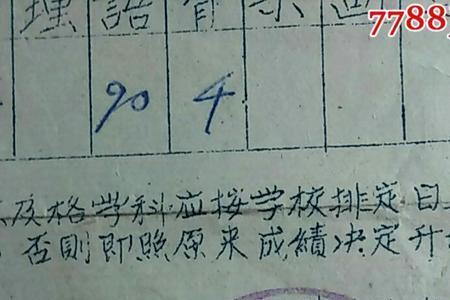 理 語 音 乐
7788
90 4
及格学科应按学校排定日
否則即照原来成績决定升